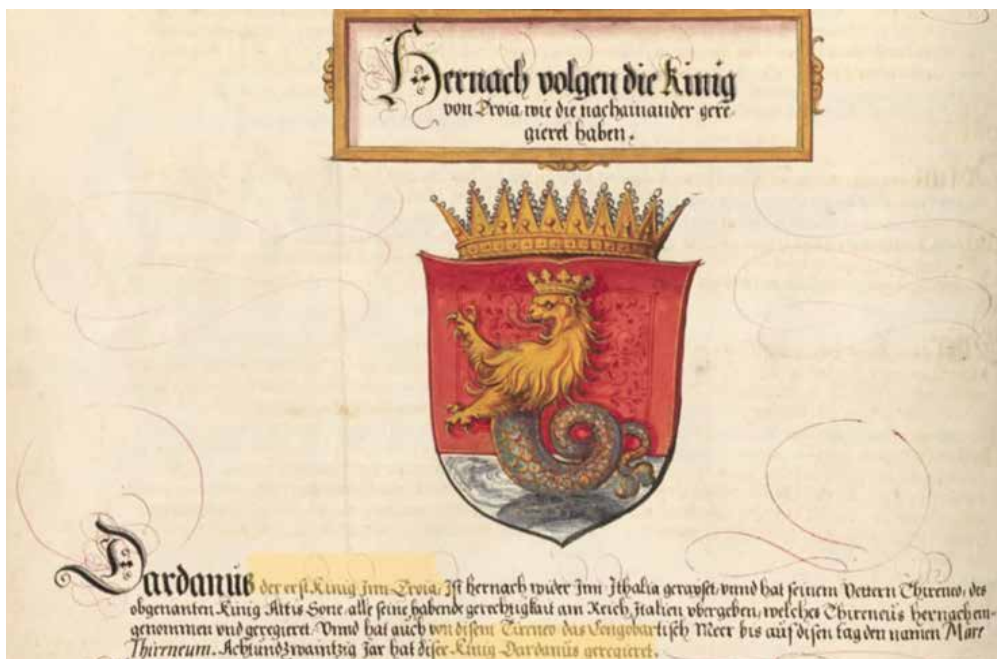 Hernach volgen die Kinig
von Troia, wie die nachainander gere-
gieret haben.
Dardanus der erst Kinig Jnn Troia, Jst hernach wider Jnn Jthalia geraiset, vnnd hat seinem Vettern Thireneo, des
obgenanten Kinig Attis Sone, alle seine habende gerechtigkait am Reich Jtalien vbergeben, welches Thireneus hernach ein-
genommen vnd geregieret. Vnnd hat auch von disem Tirreneo das Longobartisch Meer bis auf disen tag den namen Mare
Thirreneum. Achtundzwaintzig Jar hat diser Kinig Dardanus geregieret.